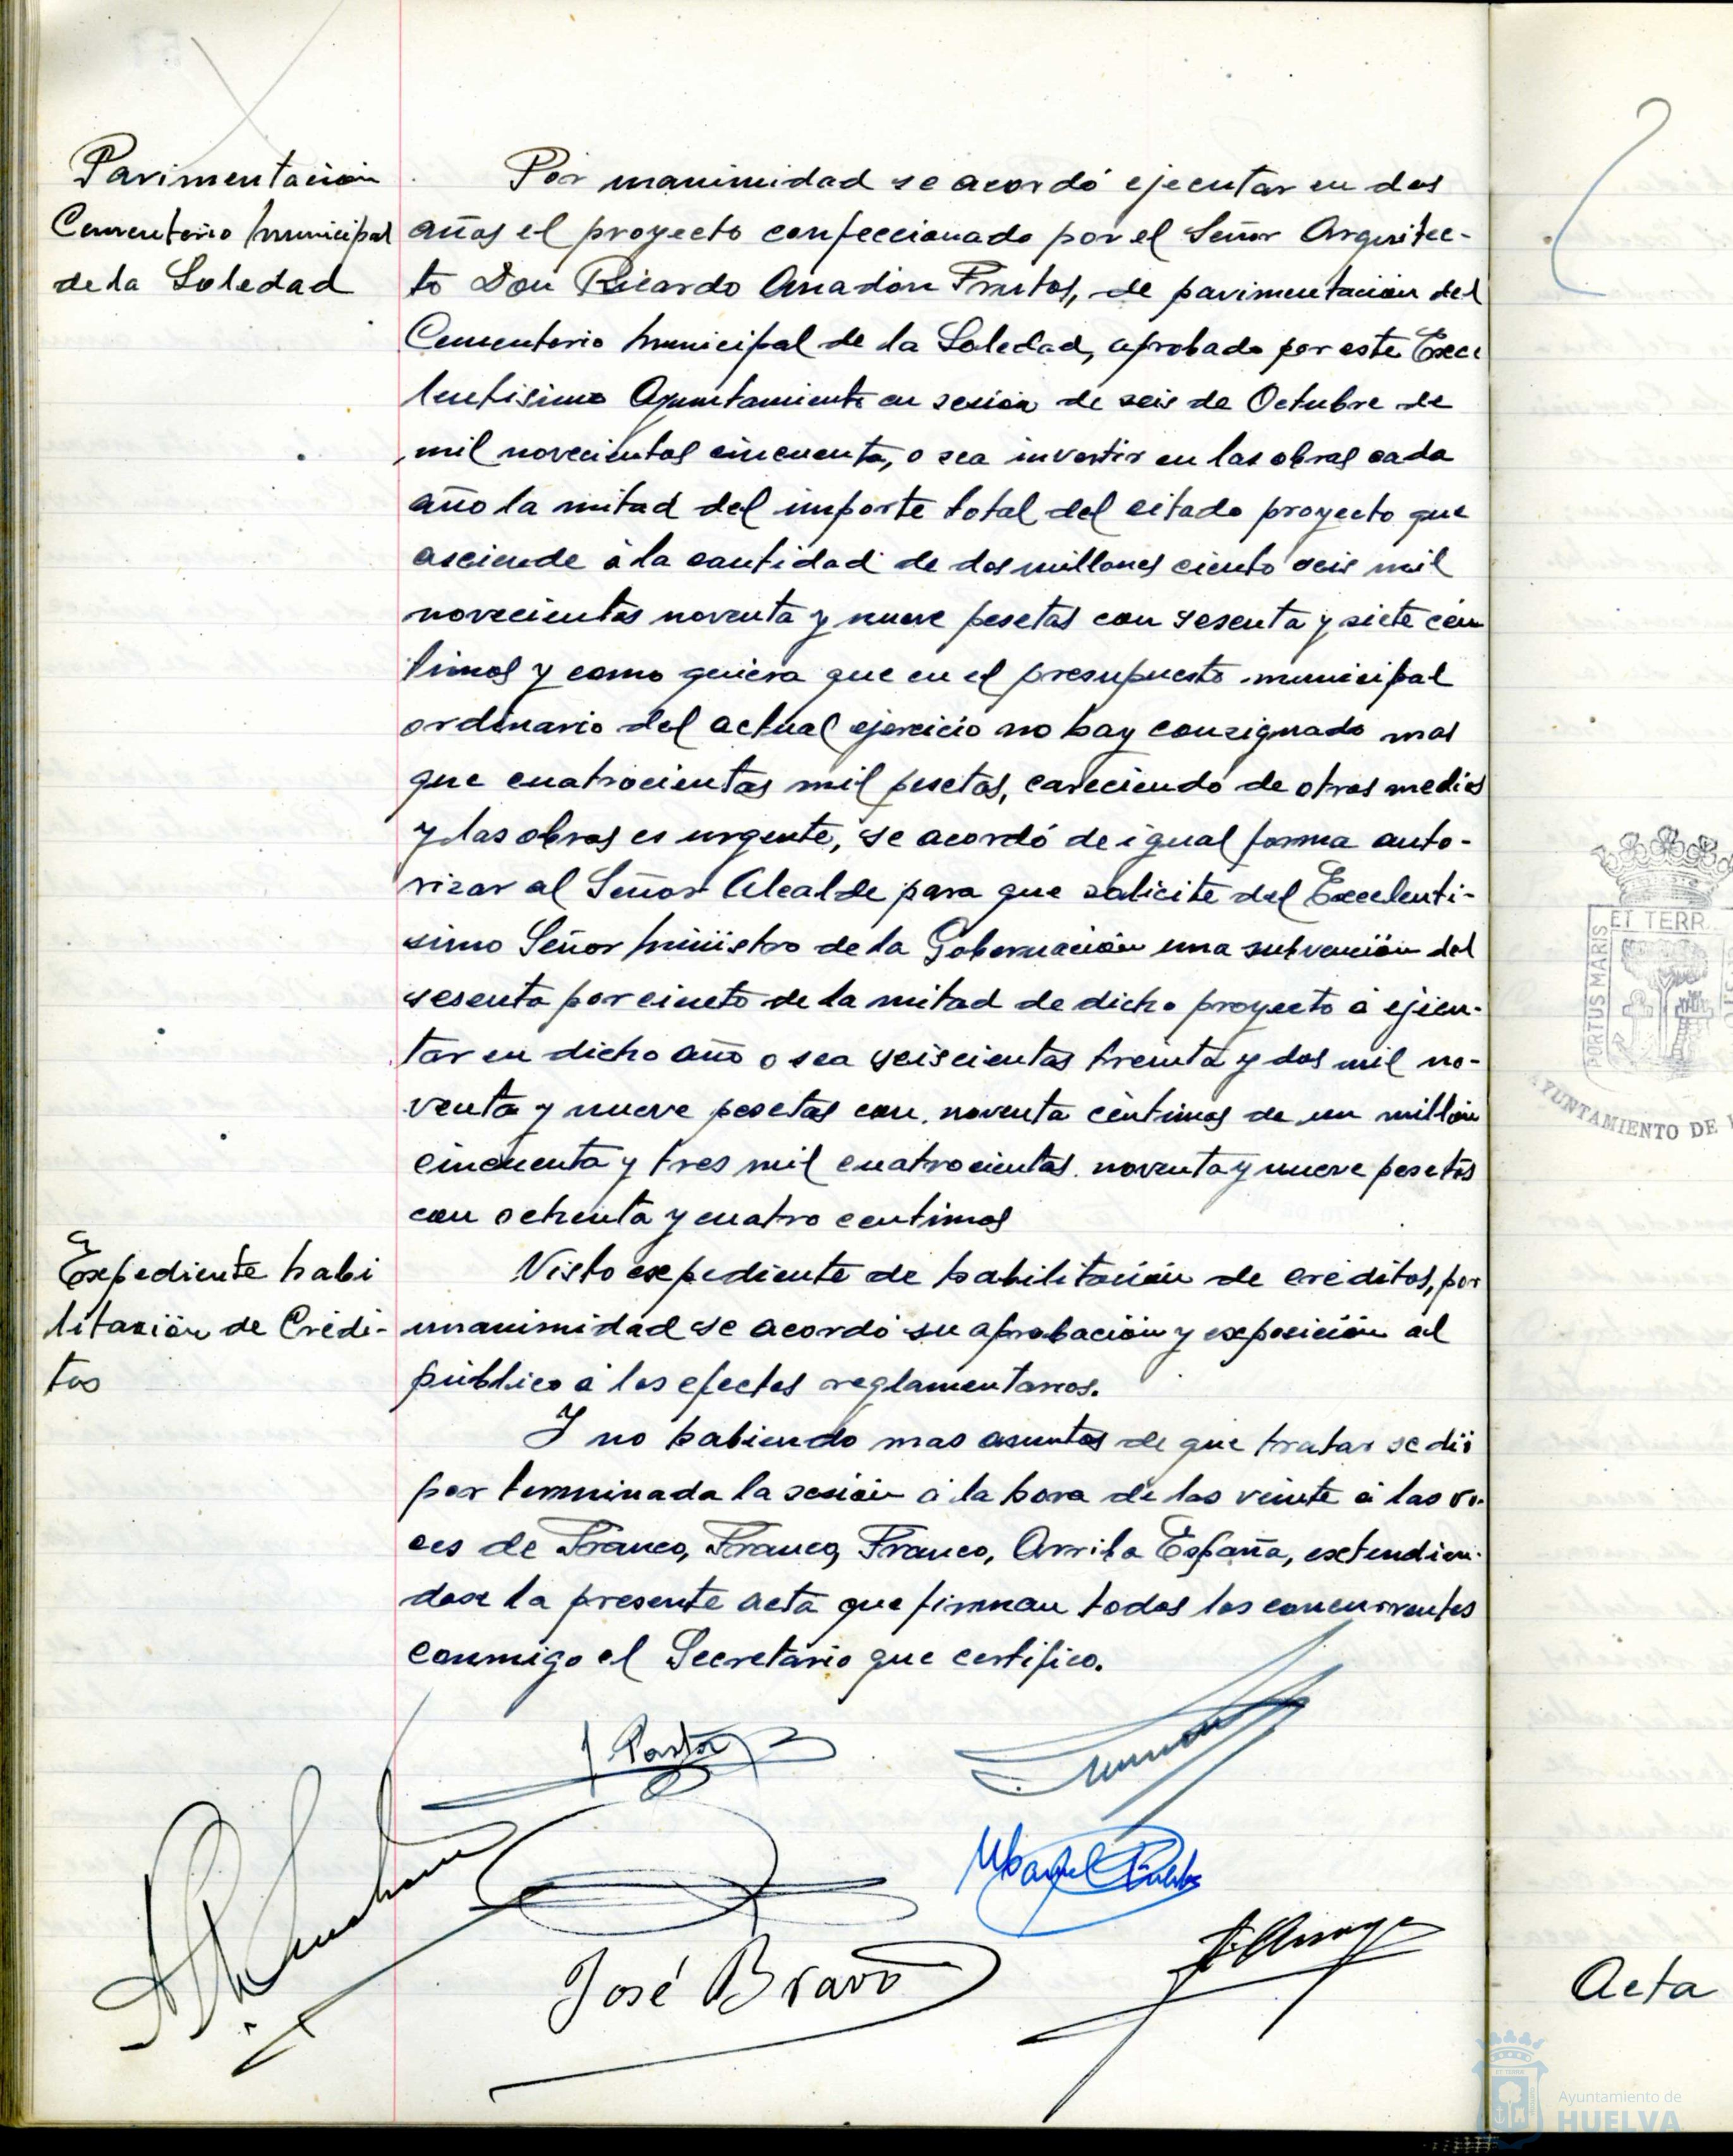 Pavimentación
Cementerio Municipal
de la Soledad
Por unanimidad se acordó ejecutar en dos
años el proyecto confeccionado por el Señor Arquitec-
to Don Ricardo Anadón Frutos, de pavimentación del
Cementerio Municipal de la Soledad, aprobado por este Exce
lentisimo Ayuntamiento en sesión de seis de Octubre de
mil novecientos cincuenta, o sea invertir en las obras cada
año la mitad del importe total del citado proyecto que
asciende á la cantidad de dos millones ciento seis mil
novecientas noventa y nueve pesetas con sesenta y siete cén
timos y como quiera que en el presupuesto municipal
ordinario del actual ejercicio no hay consignado mas
que cuatrocientas mil pesetas, careciendo de otros medios
y las obras es urgente, se acordó de igual forma auto-
rizar al Señor Alcalde para que solicite del Excelenti-
simo Señor Ministro de la Gobernación una subvención del
sesenta por cineto de la mitad de dicho proyecto á ejecu-
tar en dicho año o sea seiscientas treinta y dos mil no-
venta y nueve pesetas con noventa céntimos de un millón
cincuenta y tres mil cuatrocientas noventa y nueve pesetas
con ochenta y cuatro centimos
Expediente habi
litación de Crédi-
tos
Visto expediente de habilitación de créditos, por
unanimidad se acordó su aprobación y exposición al
público á los efectos reglamentarios.
Y no habiendo mas asuntos de que tratar se dió
por terminada la sesión á la hora de las veinte á las vo-
ces de Franco, Franco, Franco, Arriba España, extendien-
dose la presente acta que firman todos los concurrentes
conmigo el Secretario que certifico.
José Bravo
ET TERR
PORTUS MARIS
AYUNTAMIENTO DE
Acta
Ayuntamiento de
HUELVA